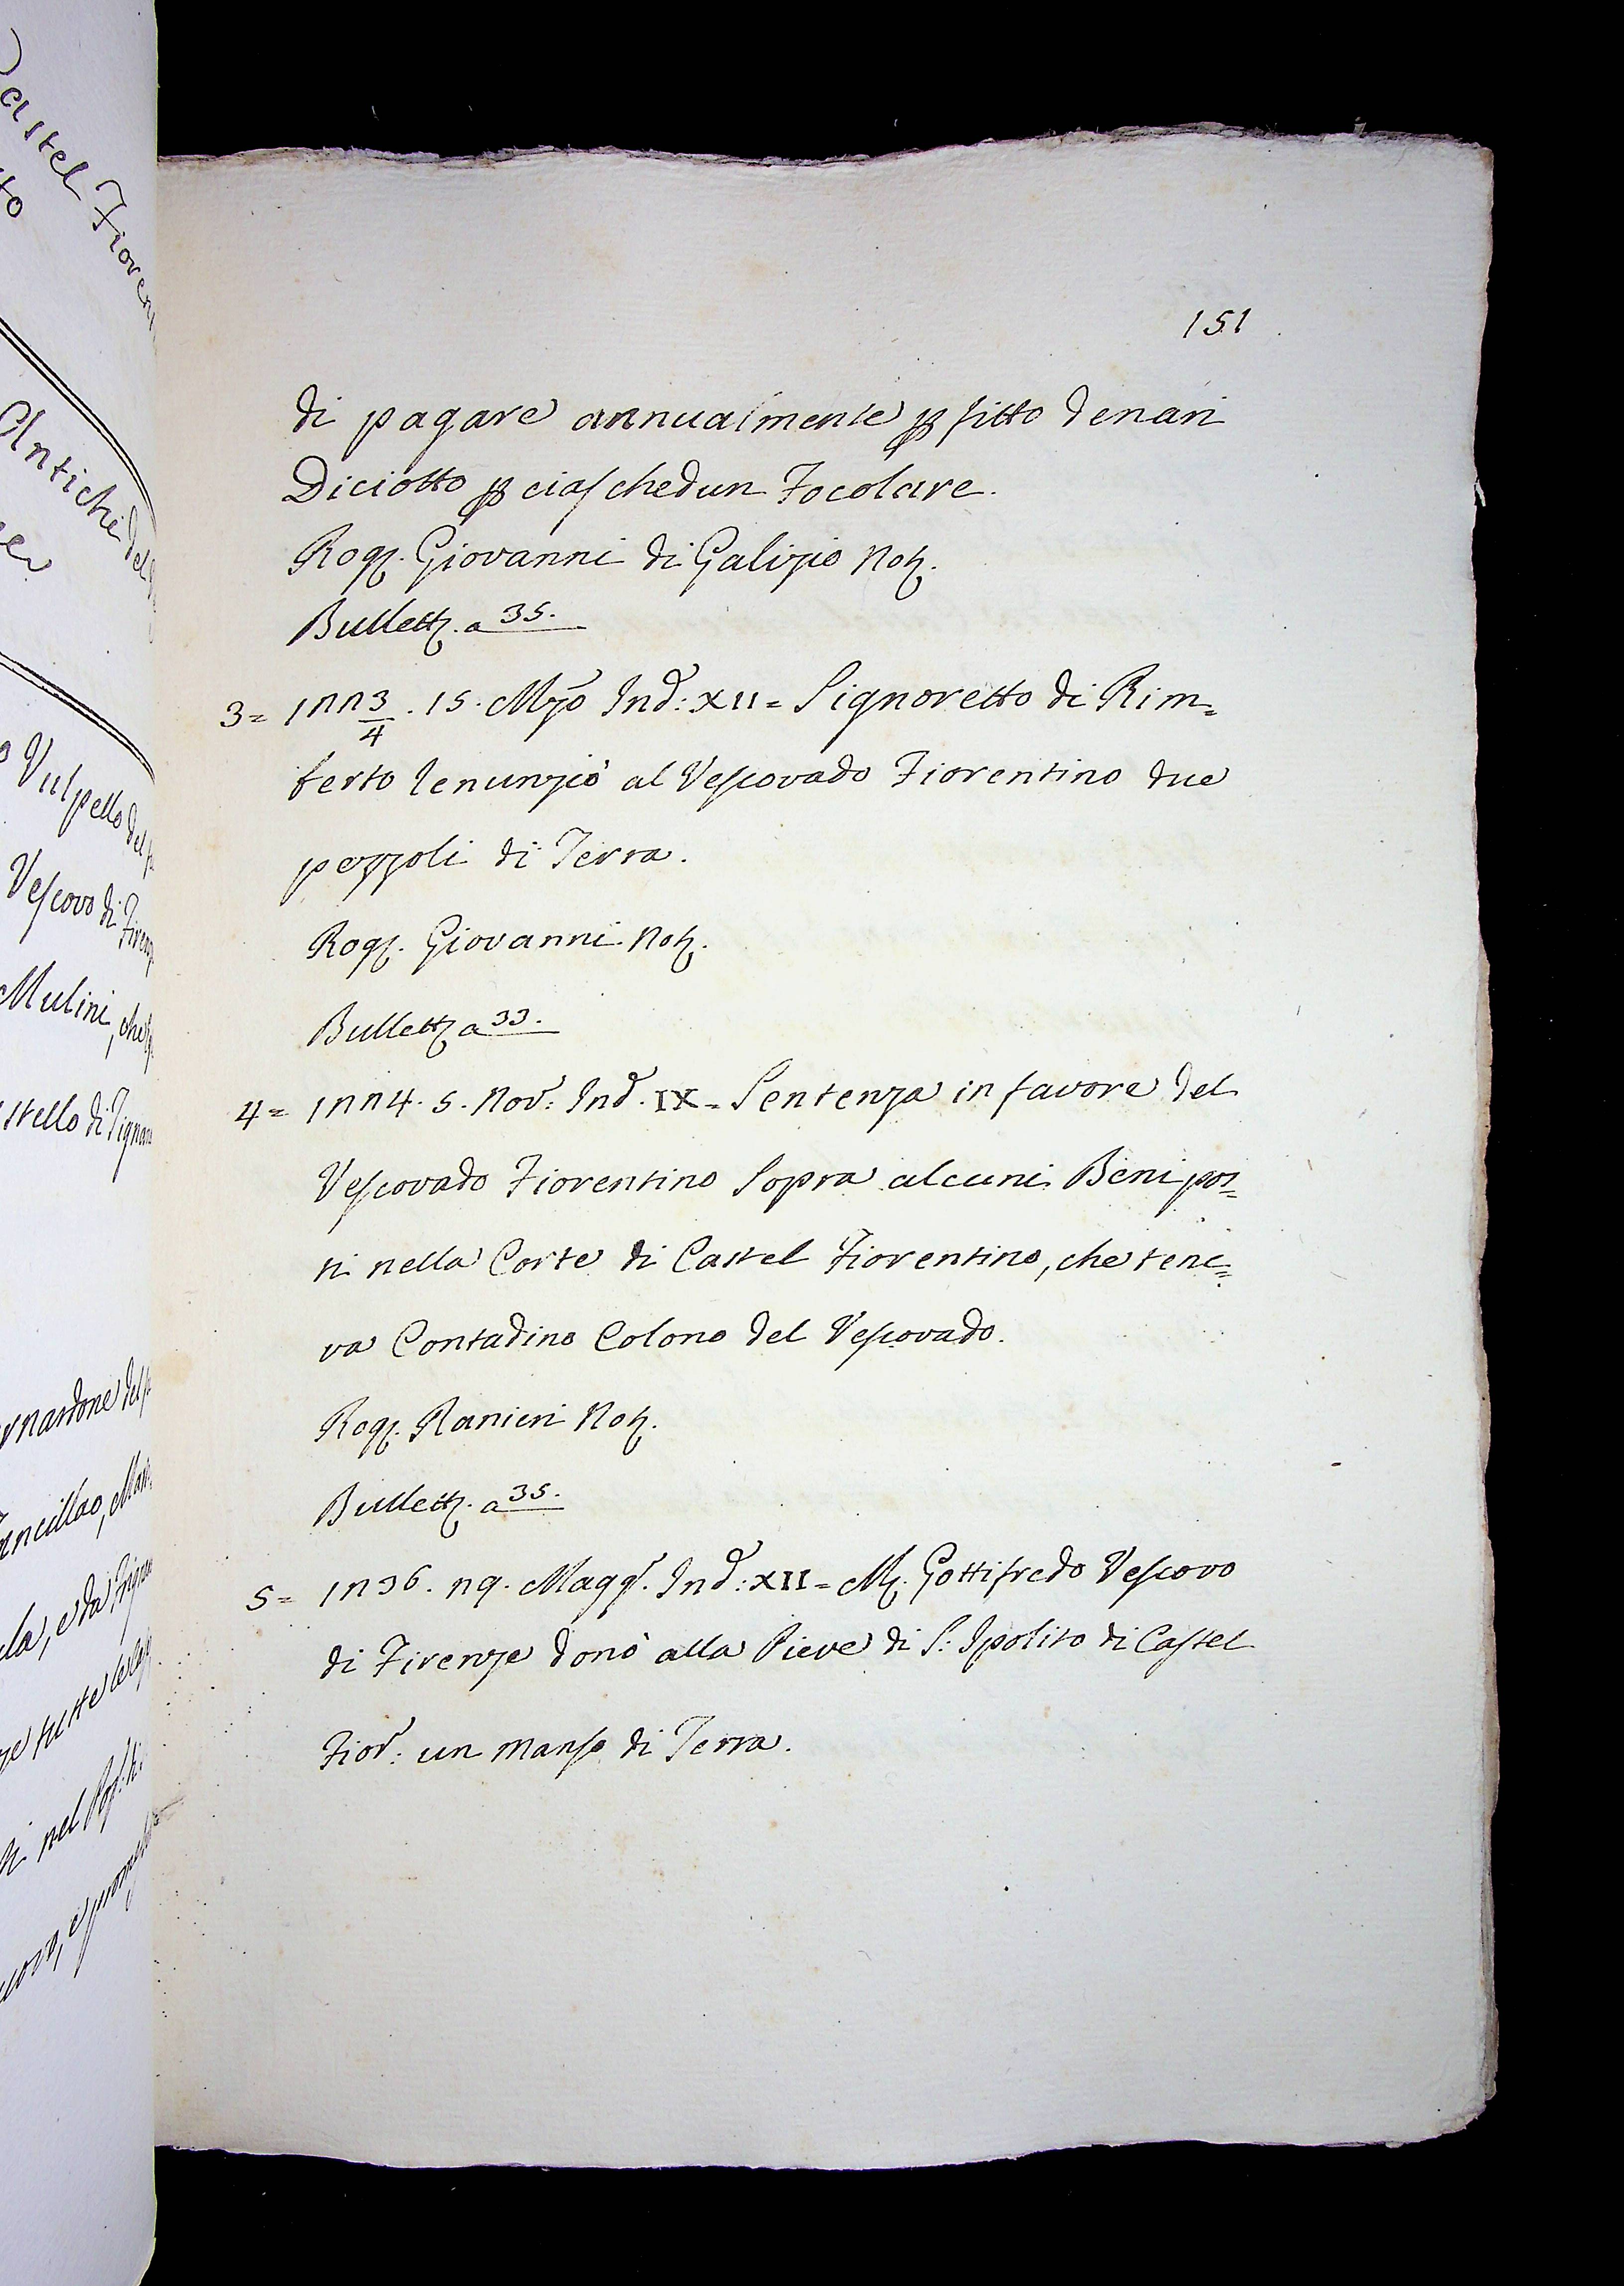 Castel Fioren
Antichi del
Vulpello del
Vescovo di Firenz
Mulini, che
stello di Pignan
rnardone del
ancillao, Mar
la, e da
ze tutte le
ti nel
151
di pagare annualmente ꝑ fitto denari
Diciotto ꝑ ciaschedun Focolare.
Rog. Giovanni di Galizio Not.
Bullett. a 35.
3= 1223/4. 15. Mzo Ind: XII = Signoretto di Rim=
berto renunziò al Vescovado Fiorentino due
pezzoli di Terra.
Rog. Giovanni Not.
Bullett. a 33.
4= 1224. 5. Nov: Ind. IX = Sentenza in favore del
Vescovado Fiorentino Sopra alcuni Beni pos=
ti nella Corte di Castel Fiorentino, che tene=
va Contadino Colono del Vescovado.
Rog. Ranieri Not.
Bullett. a 35.
5= 1236. 29. Magg. Ind: XII = M. Gottifredo Vescovo
di Firenze donò alla Pieve di S: Ipolito di Castel
Fior: un manso di Terra.